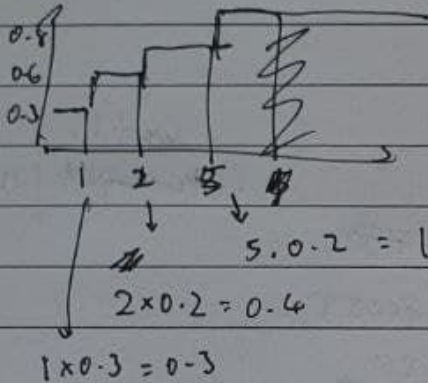 0.8
0.6
0.3
1 2 5
5.0.2 = 1
2×0.2 = 0.4
1×0.3 = 0.3